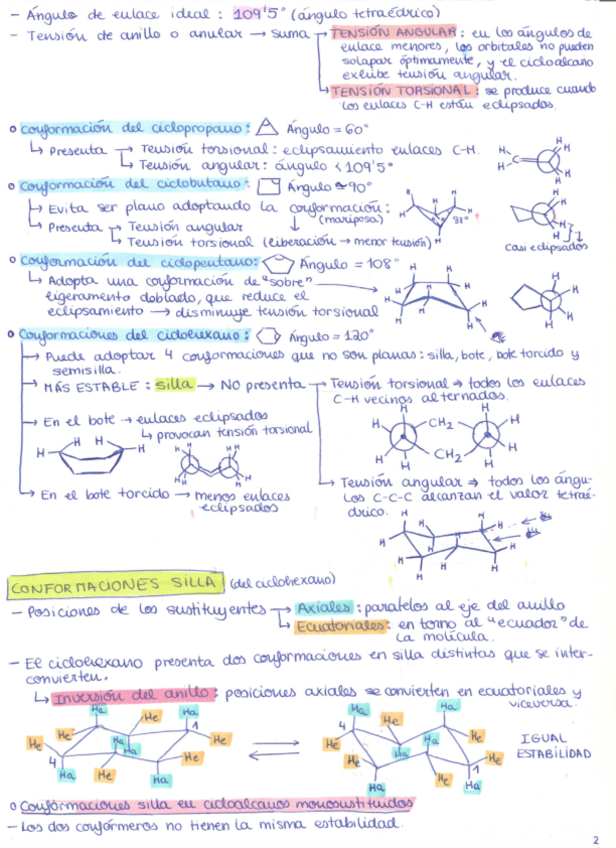 - Ángulo de enlace ideal : 109'5° (ángulo tetraédrico)
- Tensión de anillo o anular → suma → TENSIÓN ANGULAR : en los ángulos de
enlace menores, los orbitales no pueden
solapar óptimamente, y el cicloalcano
exhibe tensión angular.
→ TENSIÓN TORSIONAL : se produce cuando
los enlaces C-H están eclipsados.
o Conformación del ciclopropano : Ángulo = 60°
↳ Presenta → Tensión torsional : eclipsamiento enlaces C-H.
↳ Tensión angular : ángulo < 109'5°
o Conformación del ciclobutano : Ángulo ≃ 90°
↳ Evita ser plano adoptando la conformación :
(mariposa)
↳ Presenta → Tensión angular
↳ Tensión torsional (liberación → menor tensión)
H H H H
C
H H H H
H H H H
H
87°
H
H H
H H
casi eclipsados
o Conformación del ciclopentano: Ángulo = 108°
↳ Adopta una conformación de "sobre"
ligeramente doblado, que reduce el
eclipsamiento → disminuye tensión torsional
H H H H H H
o Conformaciones del ciclohexano : Ángulo = 120°
→ Puede adoptar 4 conformaciones que no son planas : silla, bote, bote torcido y
semisilla.
→ MÁS ESTABLE : silla → No presenta → Tensión torsional → todos los enlaces
C-H vecinos alternados.
→ En el bote → enlaces eclipsados
↳ provocan tensión torsional
H H H H
H H CH2 H H
H H CH2 H H
↳ Tensión angular → todos los ángu-
los C-C-C alcanzan el valor tetraé-
drico.
↳ En el bote torcido → menos enlaces
eclipsados
H H H H H H H H
CONFORMACIONES SILLA (del ciclohexano)
- Posiciones de los sustituyentes → Axiales : paralelos al eje del anillo
↳ Ecuatoriales : en torno al "ecuador" de
la molécula.
- El ciclohexano presenta dos conformaciones en silla distintas que se inter-
convierten.
↳ Inversión del anillo : posiciones axiales se convierten en ecuatoriales y
viceversa.
Ha He Ha
He 1 He
He Ha Ha He
4
Ha He Ha
Ha He Ha
4
He Ha He
He Ha 1
Ha He Ha
IGUAL
ESTABILIDAD
o Conformaciones silla en cicloalcanos monosustituidos
- Los dos confórmeros no tienen la misma estabilidad.
2